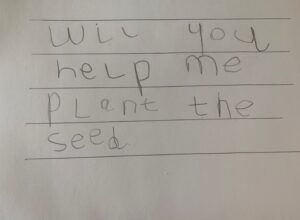 Will you
help me
Plant the
seed